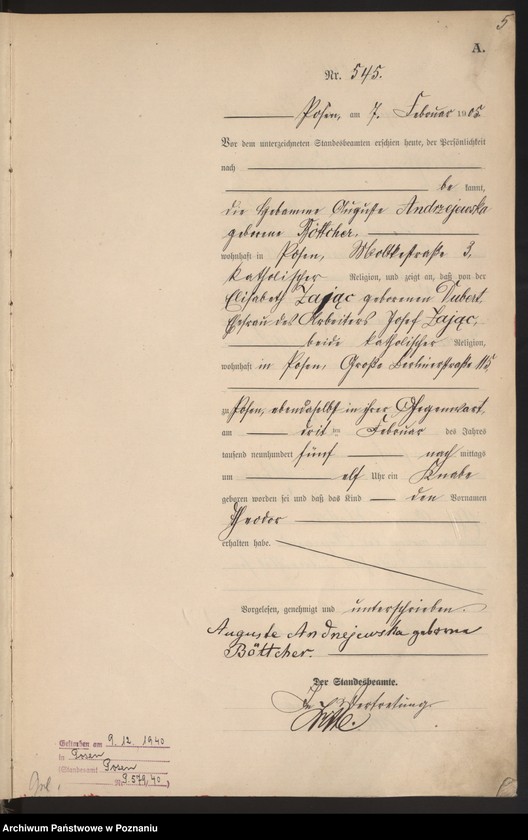 5
A.
Nr. 545.
Posen, am 7. Februar 1905.
Vor dem unterzeichneten Standesbeamten erschien heute, der Persönlichkeit
nach
be kannt,
die Hebamme Auguste Andrzejewska
geborene Böttcher,
wohnhaft in Posen, Moltkestraße 3,
katholischer Religion, und zeigt an, daß von der
Elisabeth Zając geborenen Dubert,
Ehefrau des Arbeiters Josef Zając,
beide katholischer Religion,
wohnhaft in Posen, Große Berlinerstraße 115,
zu Posen, ebendaselbst in ihrer Gegenwart,
am drit ten Februar des Jahres
tausend neunhundert fünf nach mittags
um elf Uhr ein Knabe
geboren worden sei und daß das Kind den Vornamen
Theodor
erhalten habe.
Vorgelesen, genehmigt und unterschrieben.
Auguste Andrzejewska geborene
Böttcher.
Der Standesbeamte.
In Vertretung
Gestorben am 9.12.1940
in Posen
(Standesamt Posen
Nr. 9.579/40)
Archiwum Państwowe w Poznaniu